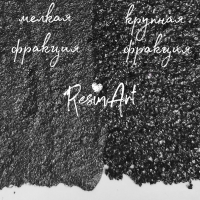 мелкая
фракция
крупная
фракция
Resin Art